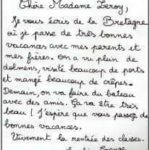 Chère Madame Leroy,
Je vous écris de la Bretagne
où je passe de très bonnes
vacances avec mes parents et
mes frères. On a vu plein de
dolmens, visité beaucoup de ports
et mangé beaucoup de crêpes.
Demain, on va faire du bateau
avec des amis. Ça va être très
beau ! J'espère que vous passez de
bonnes vacances.
Vivement la rentrée des classes.